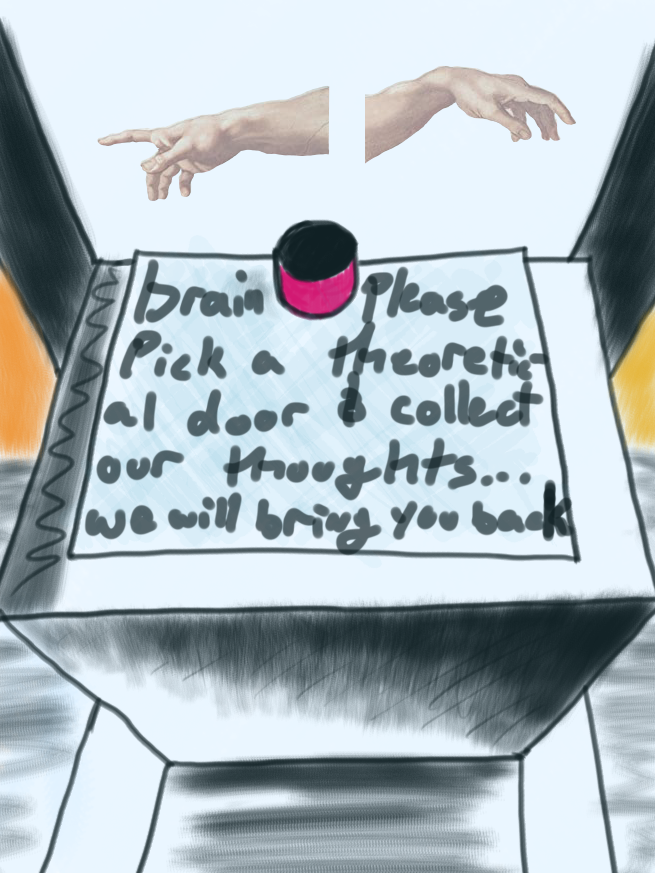 brain Please
Pick a theoretic-
al door & collect
our thoughts...
we will bring you back